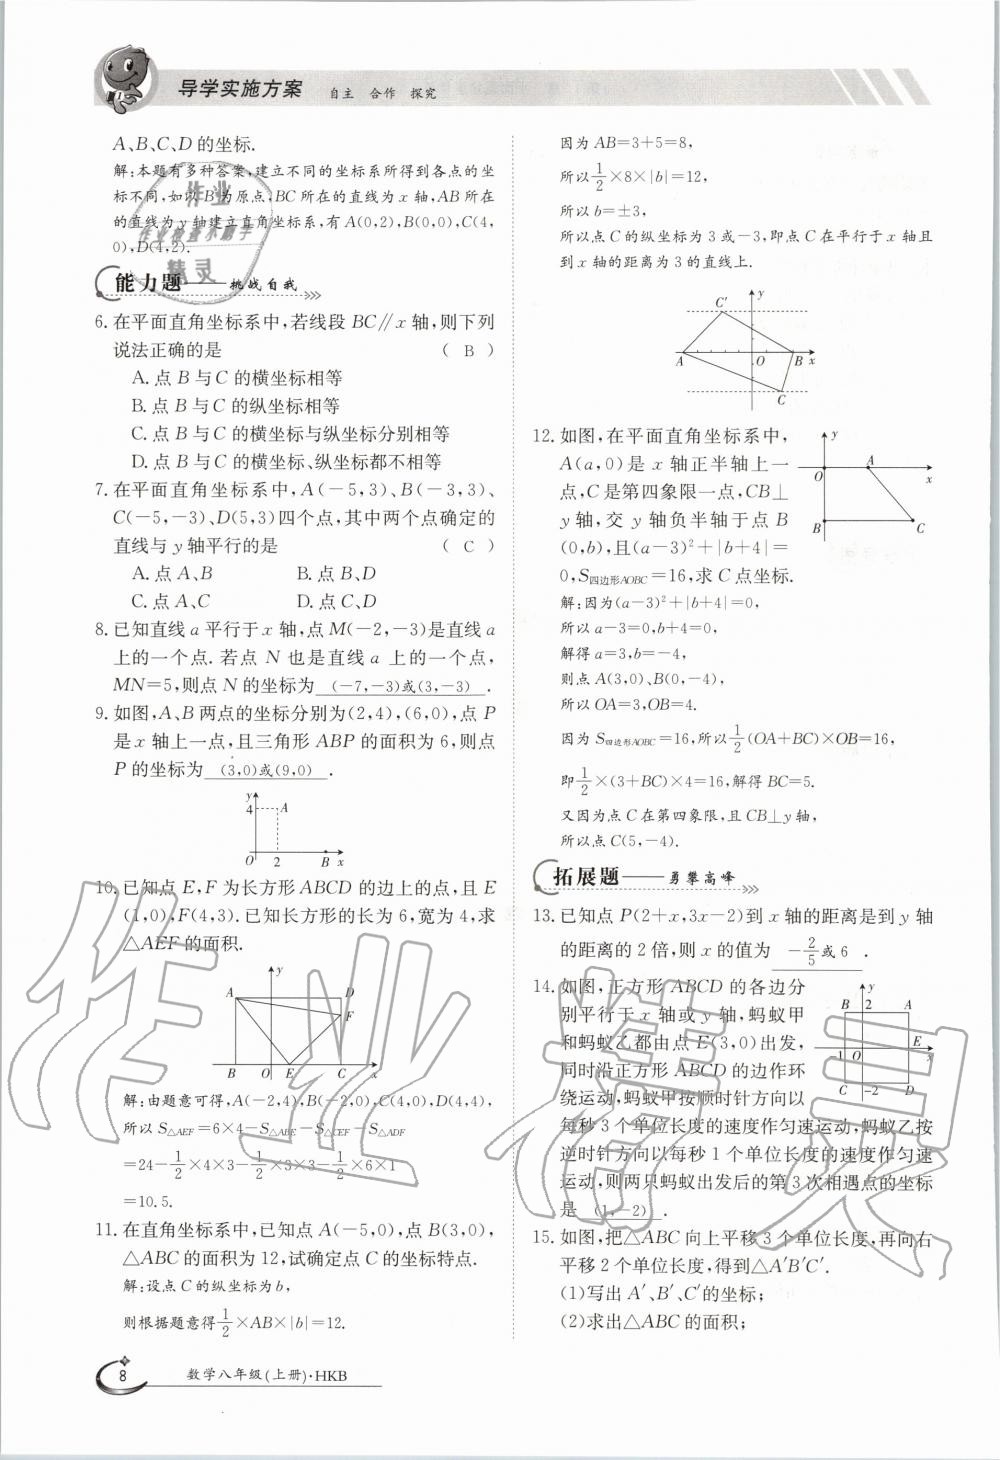 导学实施方案 自主 合作 探究
A、B、C、D 的坐标.
解:本题有多种答案,建立不同的坐标系所得到各点的坐
标不同,如以 B 为原点,BC 所在的直线为 x 轴,AB 所在
的直线为 y 轴建立直角坐标系,有 A(0,2),B(0,0),C(4,
0),D(4,2).
能力题——挑战自我
6. 在平面直角坐标系中,若线段 BC∥x 轴,则下列
说法正确的是 ( B )
A. 点 B 与 C 的横坐标相等
B. 点 B 与 C 的纵坐标相等
C. 点 B 与 C 的横坐标与纵坐标分别相等
D. 点 B 与 C 的横坐标、纵坐标都不相等
7. 在平面直角坐标系中,A(-5,3)、B(-3,3)、
C(-5,-3)、D(5,3)四个点,其中两个点确定的
直线与 y 轴平行的是 ( C )
A. 点 A、B B. 点 B、D
C. 点 A、C D. 点 C、D
8. 已知直线 a 平行于 x 轴,点 M(-2,-3)是直线 a
上的一个点. 若点 N 也是直线 a 上的一个点,
MN=5,则点 N 的坐标为 (-7,-3)或(3,-3) .
9. 如图,A、B 两点的坐标分别为(2,4),(6,0),点 P
是 x 轴上一点,且三角形 ABP 的面积为 6,则点
P 的坐标为 (3,0)或(9,0) .
y
4 A
O 2 B x
10. 已知点 E,F 为长方形 ABCD 的边上的点,且 E
(1,0),F(4,3). 已知长方形的长为 6,宽为 4,求
△AEF 的面积.
y
A D
F
B O E C x
解:由题意可得,A(-2,4),B(-2,0),C(4,0),D(4,4),
所以 S△AEF=6×4-S△ABE-S△CEF-S△ADF
=24-1/2×4×3-1/2×3×3-1/2×6×1
=10.5.
11. 在直角坐标系中,已知点 A(-5,0),点 B(3,0),
△ABC 的面积为 12,试确定点 C 的坐标特点.
解:设点 C 的纵坐标为 b,
则根据题意得1/2×AB×|b|=12.
因为 AB=3+5=8,
所以1/2×8×|b|=12,
所以 b=±3,
所以点 C 的纵坐标为 3 或-3,即点 C 在平行于 x 轴且
到 x 轴的距离为 3 的直线上.
C′ y
A O B x
C
12. 如图,在平面直角坐标系中,
A(a,0)是 x 轴正半轴上一
点,C 是第四象限一点,CB⊥
y 轴,交 y 轴负半轴于点 B
(0,b),且(a-3)²+|b+4|=
0,S四边形AOBC=16,求 C 点坐标.
y
O A x
B C
解:因为(a-3)²+|b+4|=0,
所以 a-3=0,b+4=0,
解得 a=3,b=-4,
则点 A(3,0)、B(0,-4),
所以 OA=3,OB=4.
因为 S四边形AOBC=16,所以1/2(OA+BC)×OB=16,
即1/2×(3+BC)×4=16,解得 BC=5.
又因为点 C 在第四象限,且 CB⊥y 轴,
所以点 C(5,-4).
拓展题——勇攀高峰
13. 已知点 P(2+x,3x-2)到 x 轴的距离是到 y 轴
的距离的 2 倍,则 x 的值为 -2/5或 6 .
14. 如图,正方形 ABCD 的各边分
别平行于 x 轴或 y 轴,蚂蚁甲
和蚂蚁乙都由点 E(3,0)出发,
同时沿正方形 ABCD 的边作环
绕运动,蚂蚁甲按顺时针方向以
每秒 3 个单位长度的速度作匀速运动,蚂蚁乙按
逆时针方向以每秒 1 个单位长度的速度作匀速
运动,则两只蚂蚁出发后的第 3 次相遇点的坐标
是 (1,-2) .
y
B 2 A
E
-1 O x
C -2 D
15. 如图,把△ABC 向上平移 3 个单位长度,再向右
平移 2 个单位长度,得到△A′B′C′.
(1)写出 A′、B′、C′的坐标;
(2)求出△ABC 的面积;
8 数学八年级(上册)·HKB
作业
作业检查小助手
精灵
作业精灵